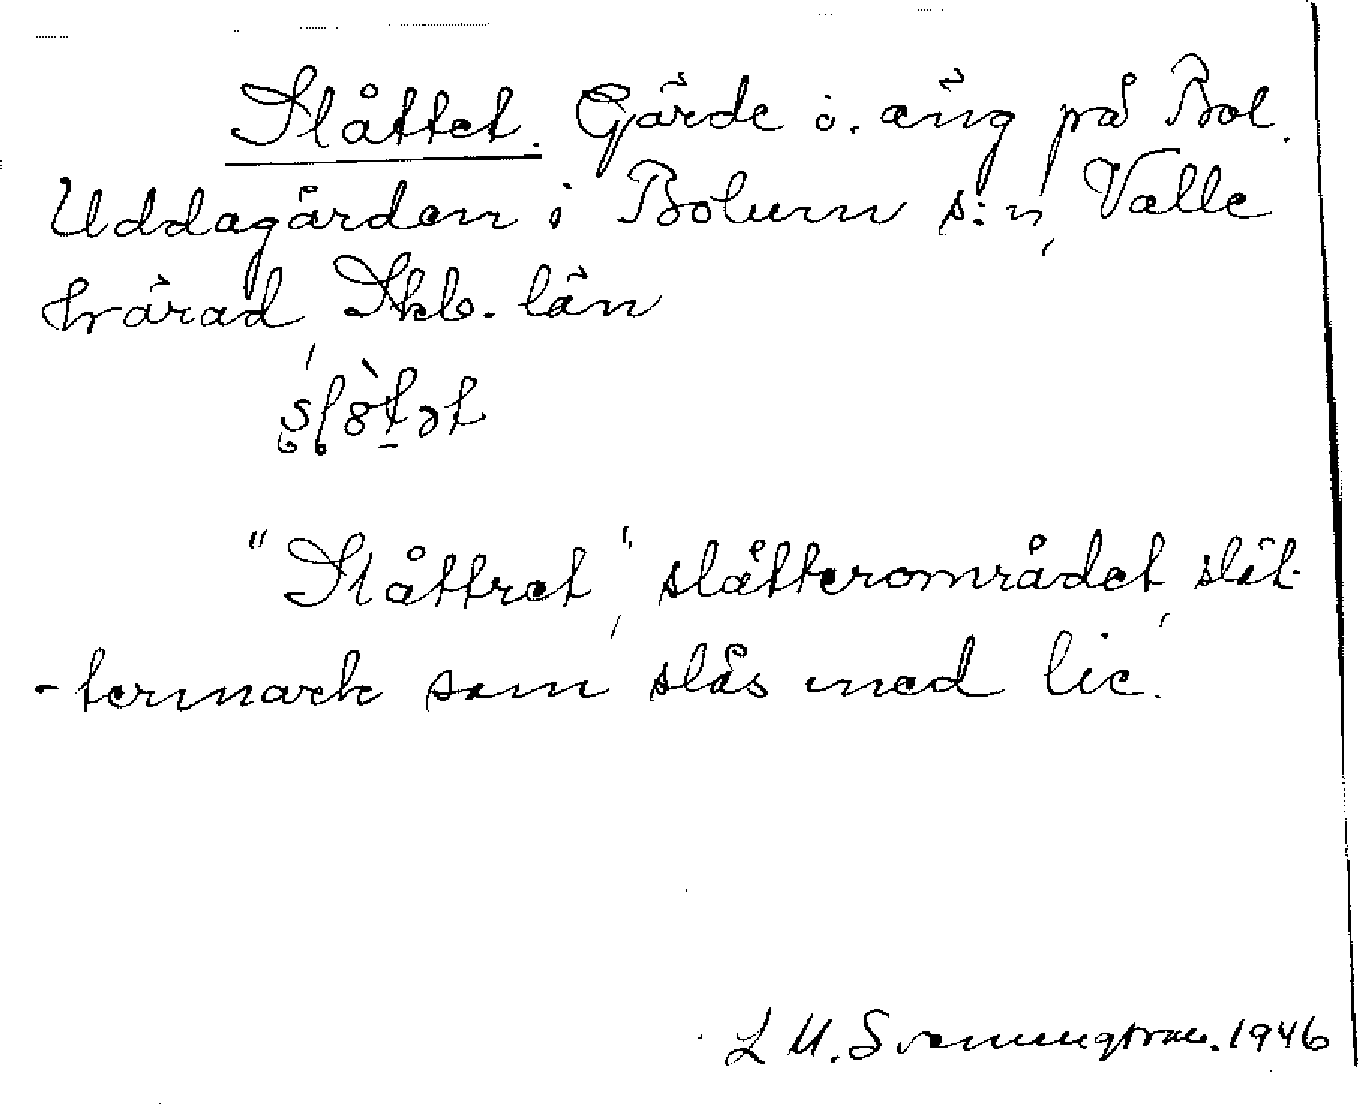 Slåttet. Gärde o. äng på Bol.
Uddagården i Bolum s:n, Valle
härad, Skb. län
"Slåttret", slåtterområdet, slåt-
-termark som slås med lie.
L M. Svenungsson. 1946